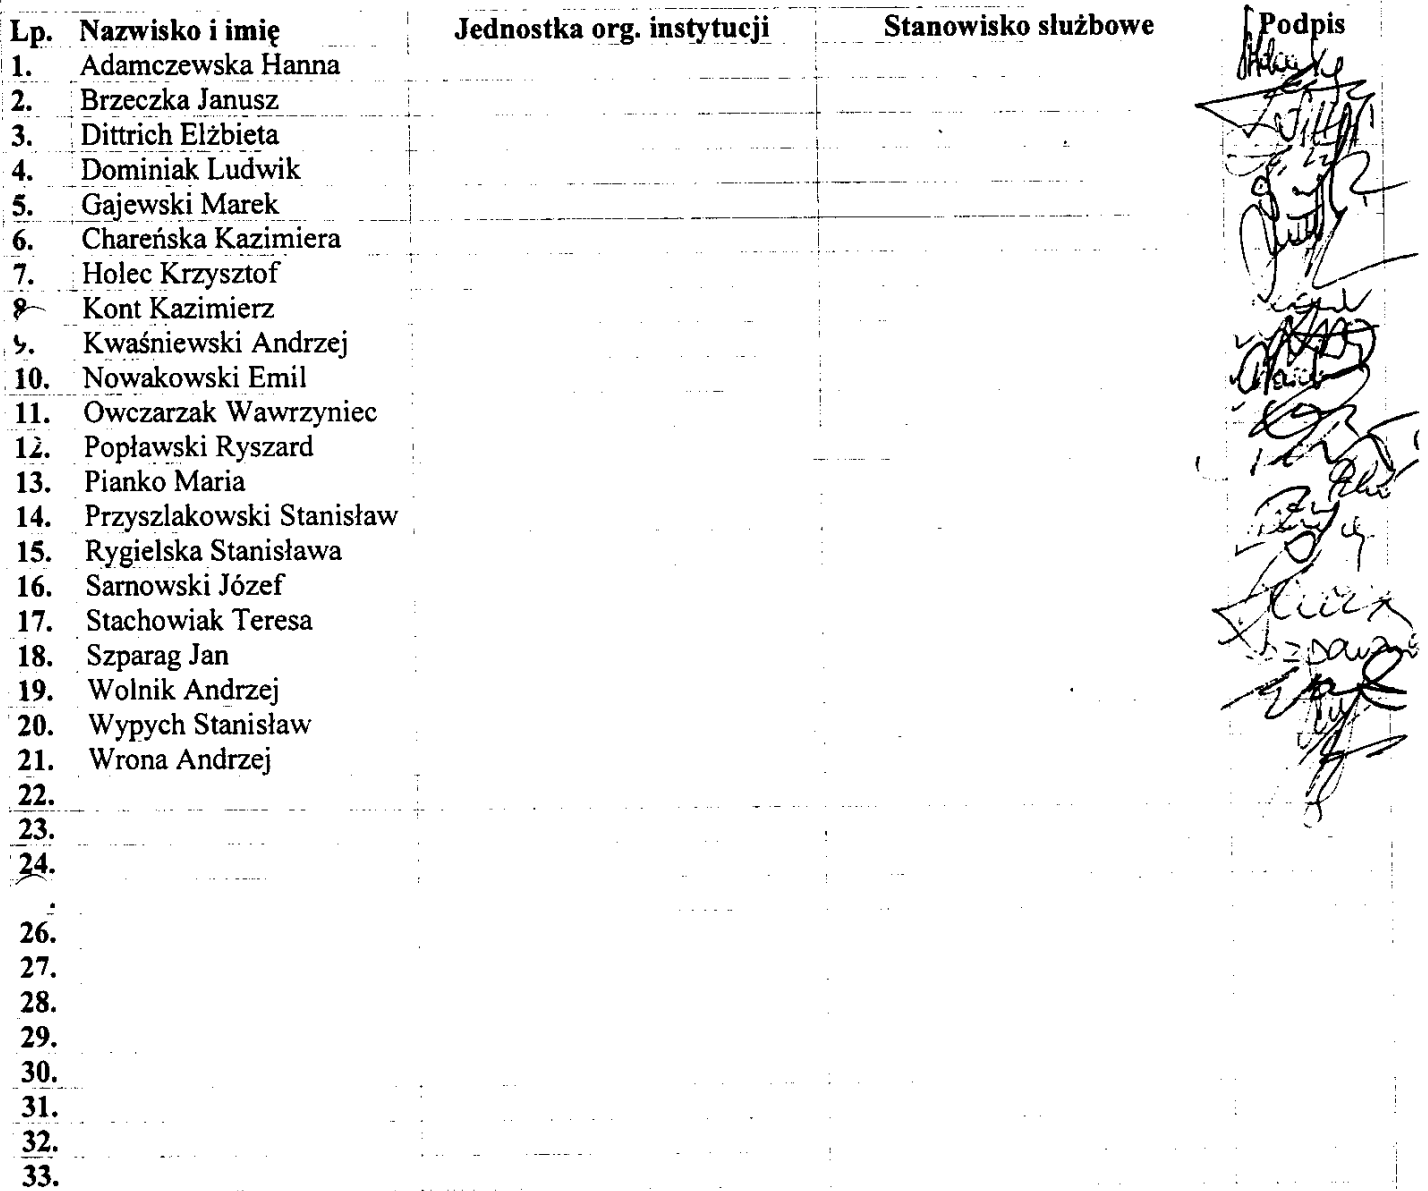 Lp. Nazwisko i imię Jednostka org. instytucji Stanowisko służbowe Podpis
1. Adamczewska Hanna
2. Brzeczka Janusz
3. Dittrich Elżbieta
4. Dominiak Ludwik
5. Gajewski Marek
6. Chareńska Kazimiera
7. Holec Krzysztof
8 Kont Kazimierz
9. Kwaśniewski Andrzej
10. Nowakowski Emil
11. Owczarzak Wawrzyniec
12. Popławski Ryszard
13. Pianko Maria
14. Przyszlakowski Stanisław
15. Rygielska Stanisława
16. Sarnowski Józef
17. Stachowiak Teresa
18. Szparag Jan
19. Wolnik Andrzej
20. Wypych Stanisław
21. Wrona Andrzej
22.
23.
24.
26.
27.
28.
29.
30.
31.
32.
33.